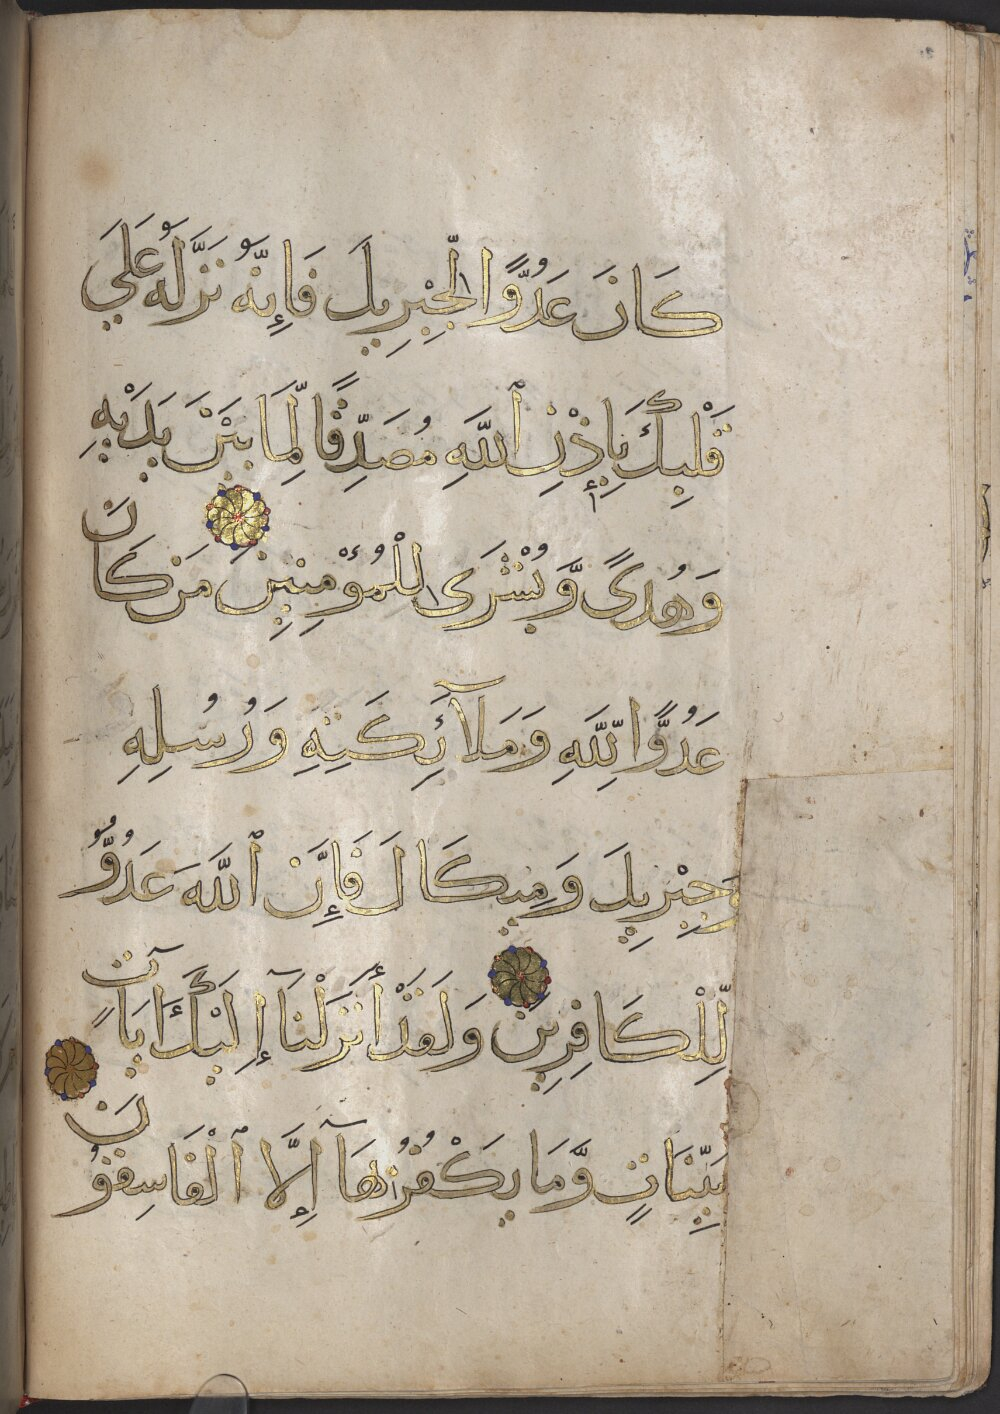 كَانَ عَدُوًّا لِّجِبْرِيلَ فَإِنَّهُ نَزَّلَهُ عَلَي
قَلْبِكَ بِإِذْنِ ٱللَّهِ مُصَدِّقًا لِّمَا بَيْنَ يَدَيْهِ
وَهُدىً وَّبُشْرَى لِلْمُؤْمِنِينَ مَن كَانَ
عَدُوًّا لِلَّهِ وَمَلَآئِكَتِهِ وَرُسُلِهِ
وَجِبْرِيلَ وَمِيكَالَ فَإِنَّ ٱللَّهَ عَدُوٌّ
لِّلْكَافِرِينَ وَلَقَدْ أَنزَلْنَآ إِلَيْكَ ءَايَاتٍ
بَيِّنَاتٍ وَّمَا يَكْفُرُ بِهَآ إِلَّا ٱلْفَاسِقُونَ